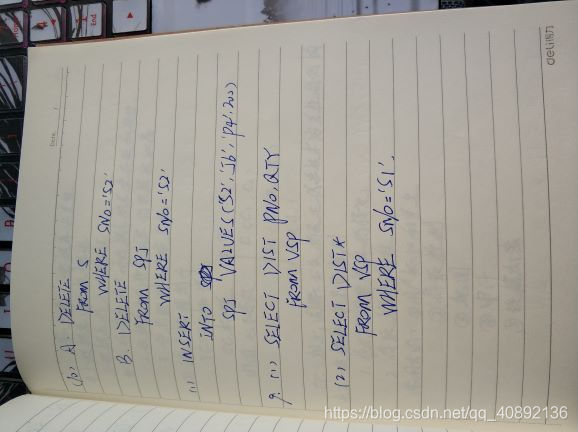 Date
(10) A. DELETE
FROM S
WHERE SNO='S2'
B. DELETE
FROM SPJ
WHERE SNO='S2'
(11) INSERT
INTO
SPJ VALUES('S2','J6','P4',200)
9. (1) SELECT DIST PNO,QTY
FROM VSP
(2) SELECT DIST*
FROM VSP
WHERE SNO='S1'.
deli得力
End
https://blog.csdn.net/qq_40892136